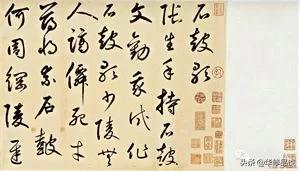 石鼓歌
張生手持石鼓
文勸我試作
石鼓歌少陵無
人謫仙死才
薄將奈石鼓
何周綱陵遲
头条